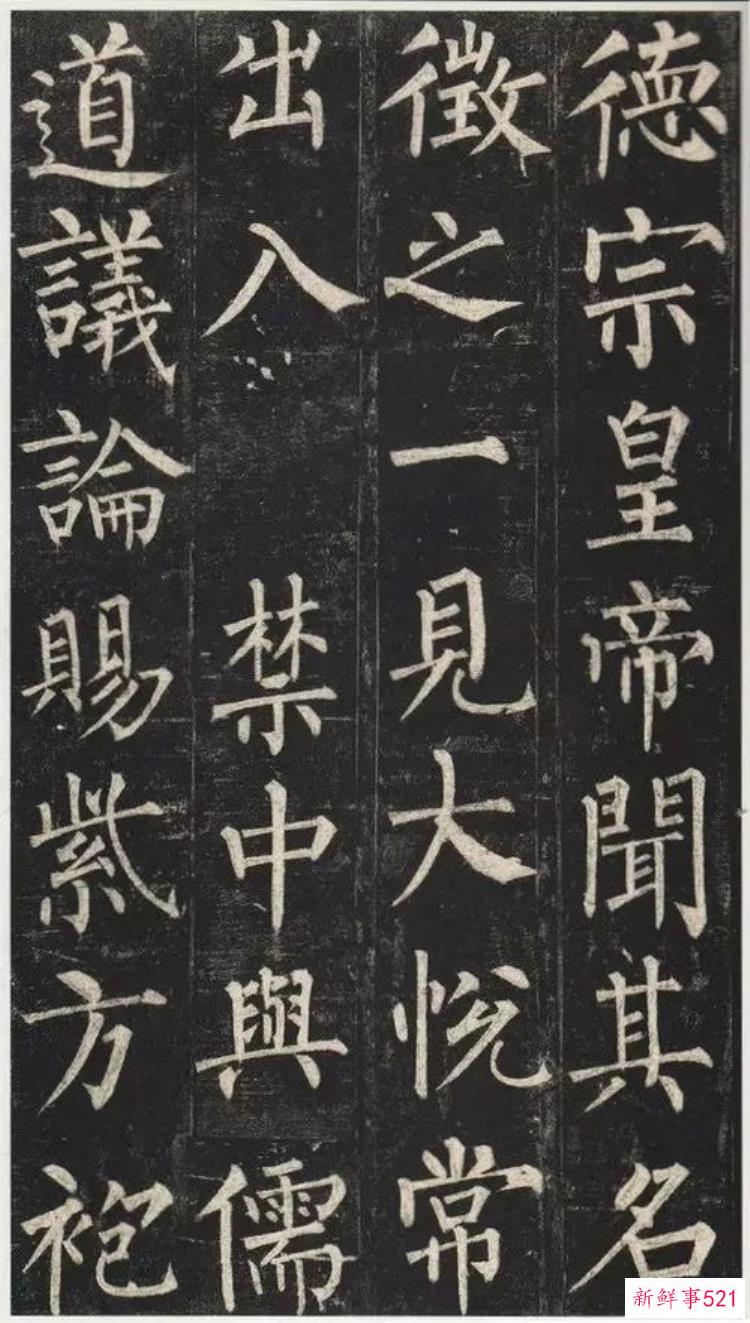 德宗皇帝聞其名
徵之一見大悅常
出入禁中與儒
道議論賜紫方袍
新鲜事521